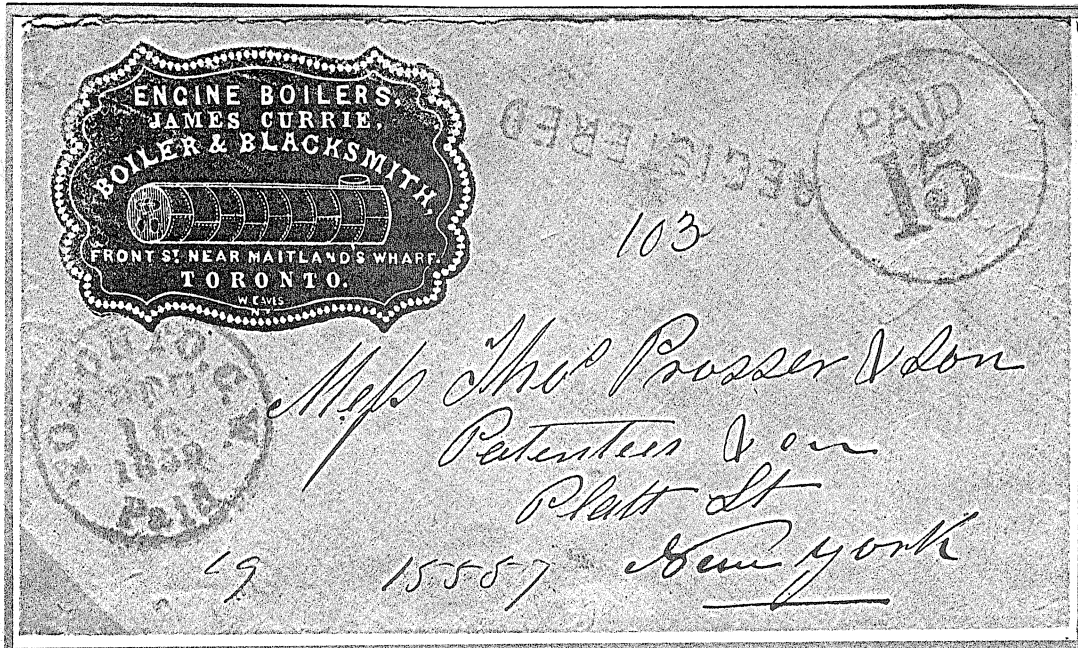 ENGINE BOILERS,
JAMES CURRIE,
BOILER & BLACKSMITH,
FRONT ST NEAR MAITLAND'S WHARF.
TORONTO.
REGISTERED
PAID
15
103
TORONTO. C.W
1859
Paid
Mess Thos Prosser & Son
Patentees &
Platt St
New York
19
15557